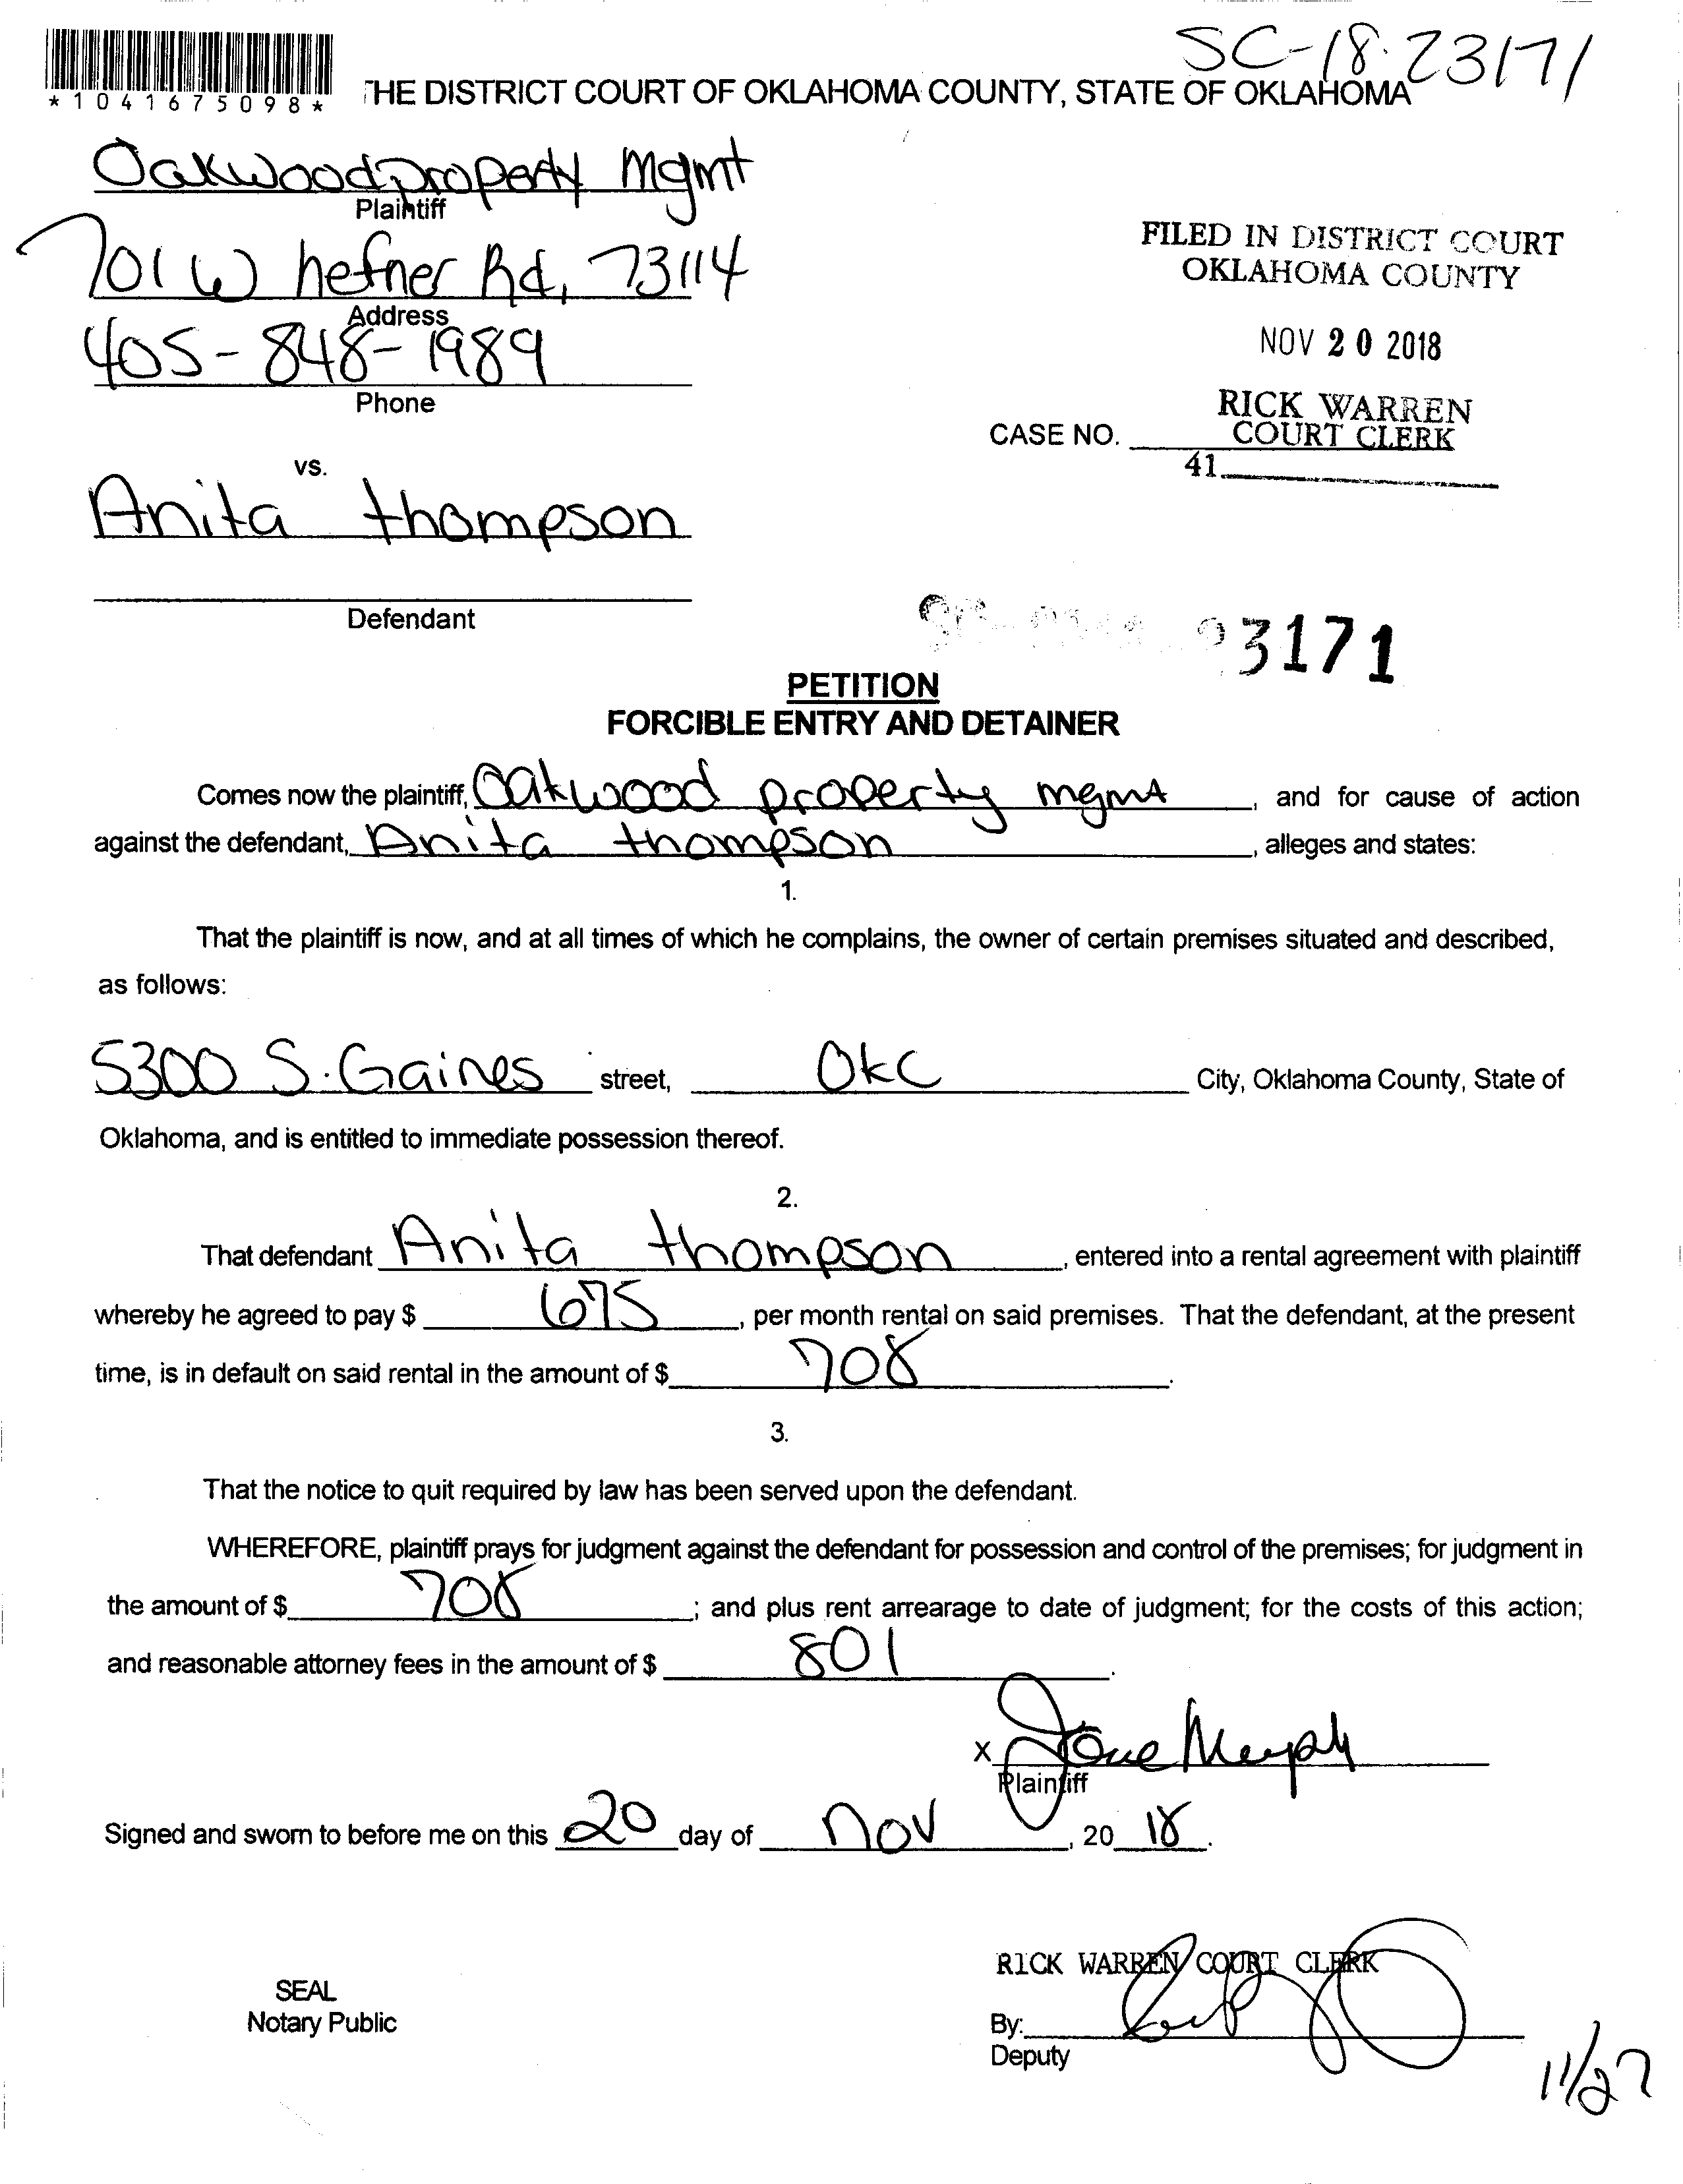 SC-18-23171
*1041675098*
THE DISTRICT COURT OF OKLAHOMA COUNTY, STATE OF OKLAHOMA
Oakwood Property Mgmt
Plaintiff
701 W hefner Rd, 73114
Address
405-848-1989
Phone
FILED IN DISTRICT COURT
OKLAHOMA COUNTY
NOV 20 2018
RICK WARREN
COURT CLERK
CASE NO.
41
vs.
Anita thompson
Defendant
23171
PETITION
FORCIBLE ENTRY AND DETAINER
Comes now the plaintiff, Oakwood property mgmt, and for cause of action
against the defendant, Anita thompson, alleges and states:
1.
That the plaintiff is now, and at all times of which he complains, the owner of certain premises situated and described,
as follows:
5300 S. Gaines street, OKC City, Oklahoma County, State of
Oklahoma, and is entitled to immediate possession thereof.
2.
That defendant Anita thompson, entered into a rental agreement with plaintiff
whereby he agreed to pay $ 675, per month rental on said premises. That the defendant, at the present
time, is in default on said rental in the amount of $ 708.
3.
That the notice to quit required by law has been served upon the defendant.
WHEREFORE, plaintiff prays for judgment against the defendant for possession and control of the premises; for judgment in
the amount of $ 708; and plus rent arrearage to date of judgment; for the costs of this action;
and reasonable attorney fees in the amount of $ 801.
X
Plaintiff
Signed and sworn to before me on this 20 day of Nov, 20 18.
RICK WARREN COURT CLERK
SEAL
Notary Public
By:
Deputy
11/27